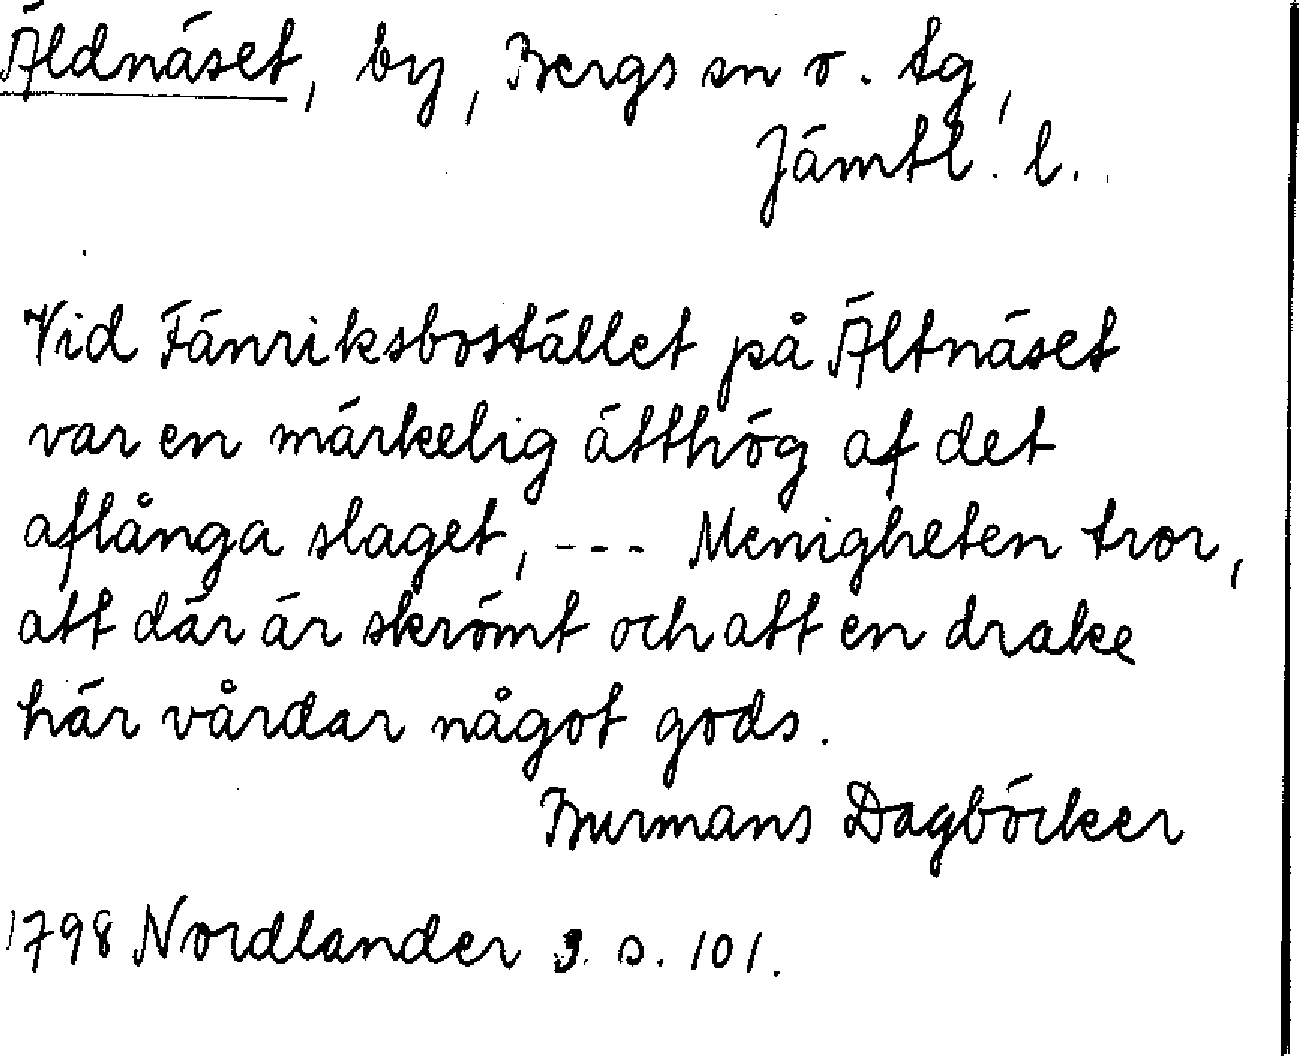 Äldnäset, by, Bergs sn o. tg,
Jämtl. l.
Vid Fänriksbostället på Ältnäset
var en märkelig ätthög af det
aflånga slaget, --- Menigheten tror,
att där är skrömt och att en drake
här vårdar något gods.
Burmans Dagböcker
1798 Nordlander 3. s. 101.